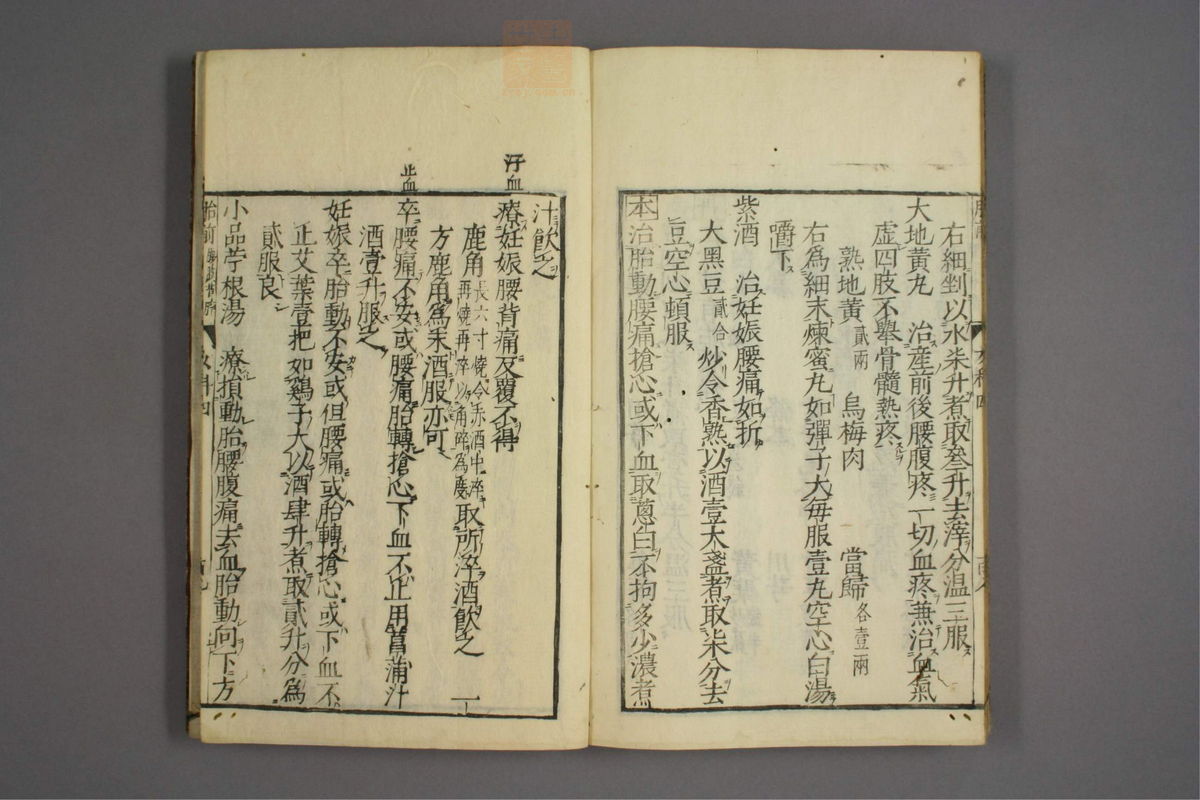 右細剉以水柒升煮取叄升去滓分温三服
大地黃丸　治産前後腰腹疼一切血疼兼治血氣
虚四肢不舉骨髓熱疼
熟地黃貳兩　烏梅肉　當歸各壹兩
右爲細末煉蜜丸如彈子大毎服壹丸空心白湯
嚼下
紫酒　治妊娠腰痛如折
大黑豆貳合炒令香熟以酒壹大盞煮取柒分去
豆空心頓服
本治胎動腰痛搶心或下血取蔥白不拘多少濃煮
汁飲之
療妊娠腰背痛反覆不得
鹿角長六寸燒令赤酒中淬再燒再淬以角碎爲度取所淬酒飲之　一
方鹿角爲末酒服亦可
卒腰痛不安或腰痛胎轉搶心下血不止用菖蒲汁
酒壹升服之
妊娠卒胎動不安或但腰痛或胎轉搶心或下血不
止艾葉壹把如鷄子大以酒肆升煮取貳升分爲
貳服良
小品苧根湯　療損動胎腰腹痛去血胎動向下方
汙血
止血
胎前
女科四